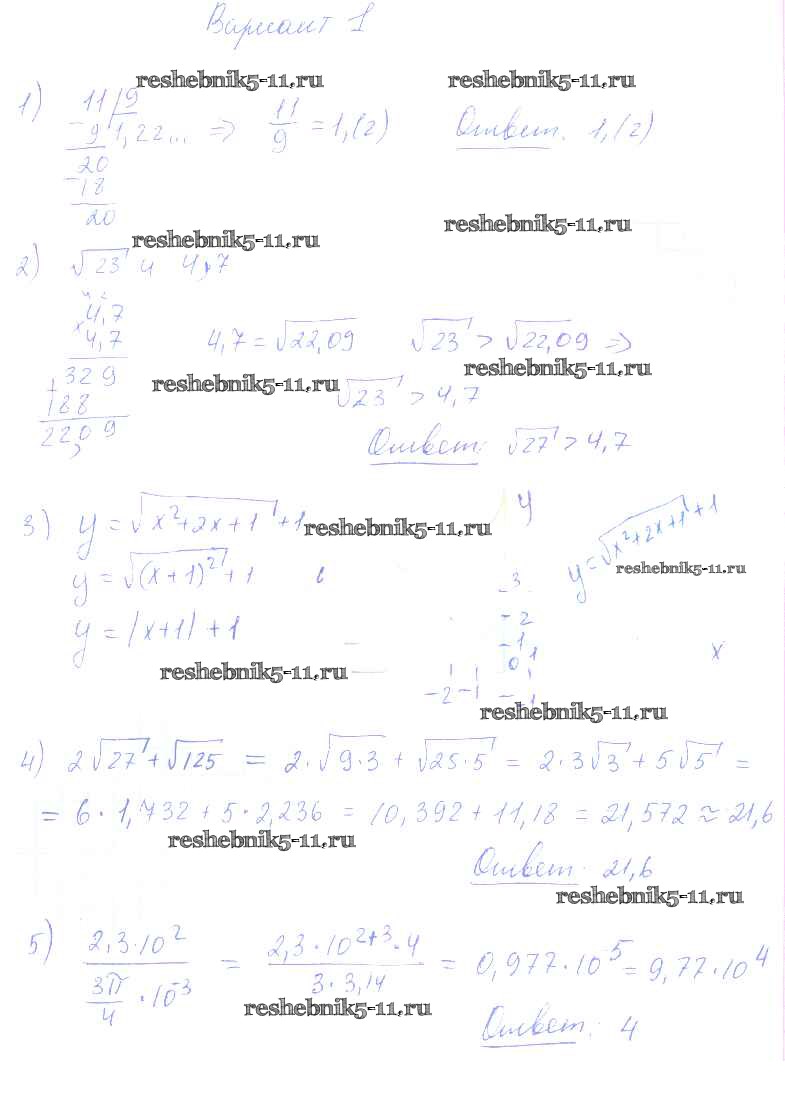 Вариант 1
reshebnik5-11.ru reshebnik5-11.ru
1) 11 | 9
- 9 1,22... => 11/9 = 1,(2) Ответ. 1,(2)
20
- 18
20
reshebnik5-11.ru reshebnik5-11.ru
2) √23 и 4,7
4,7
× 4,7 4,7 = √22,09 √23 > √22,09 =>
reshebnik5-11.ru reshebnik5-11.ru
+ 329 √23 > 4,7
188
22,09 Ответ: √27 > 4,7
3) y = √x²+2x+1 + 1 y
reshebnik5-11.ru
y = √x²+2x+1 + 1
reshebnik5-11.ru
y = √(x+1)² + 1 3
2
y = |x+1| + 1 1
0 1 x
reshebnik5-11.ru
-2 -1 -1
reshebnik5-11.ru
4) 2√27 + √125 = 2·√9·3 + √25·5 = 2·3√3 + 5√5 =
= 6·1,732 + 5·2,236 = 10,392 + 11,18 = 21,572 ≈ 21,6
reshebnik5-11.ru
Ответ: 21,6
reshebnik5-11.ru
5) 2,3·10² / (3π/4 · 10⁻³) = 2,3·10²⁺³·4 / 3·3,14 = 0,977·10⁵ = 9,77·10⁴
reshebnik5-11.ru
Ответ: 4